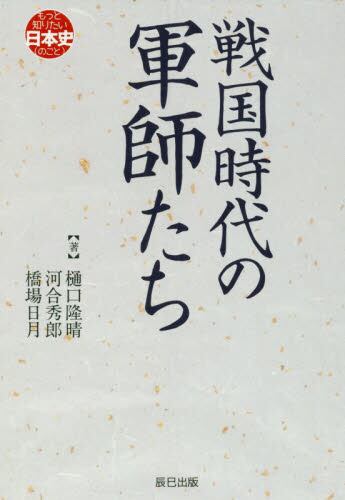 もっと
知りたい
日本史
のこと
戦国時代の
軍師たち
【著】
樋口隆晴
河合秀郎
橋場日月
辰巳出版